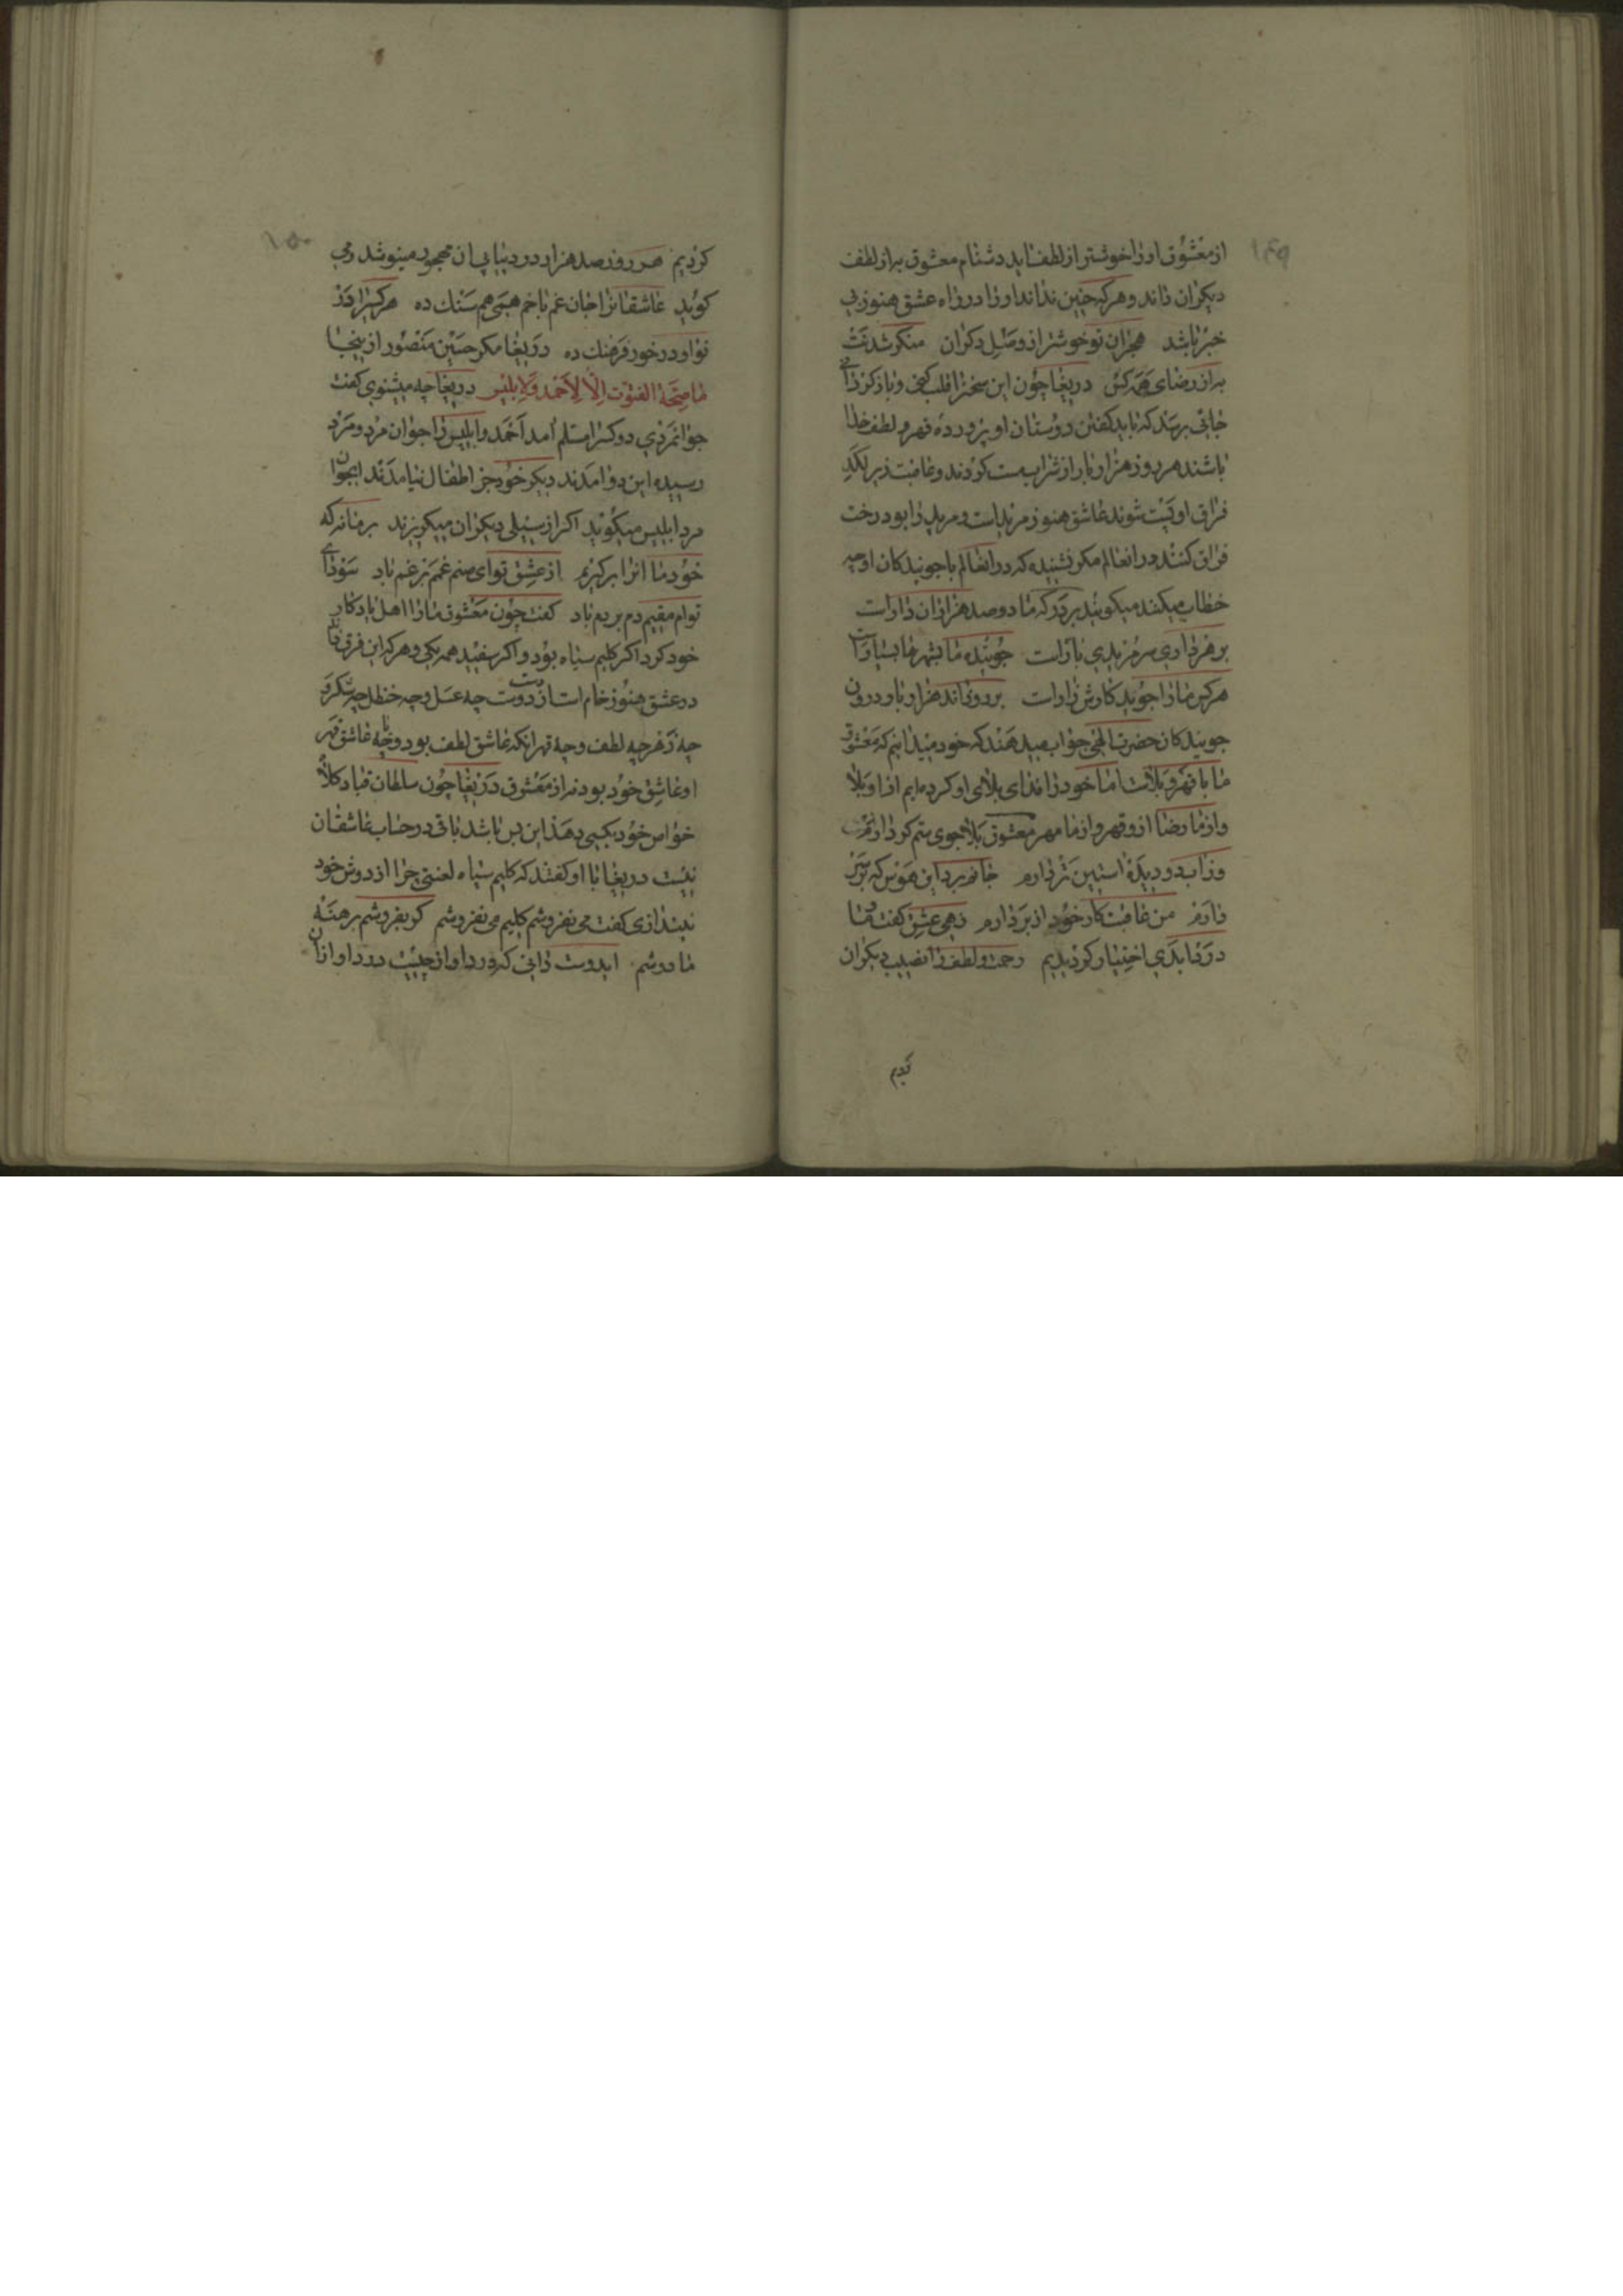 ۱۴۹
از معشوق او را خوشتر از لطف اید دشنام معشوق به از لطف
دیکران داند و هر که چنین نداند او را در راه عشق هنوز بی
خبر باشد هجران تو خوشتر از وصل دکران منکر شدنت
به از رضای همه کس دریغا چون این سخن را قلب کنی و بازکردانی
جائی برسد که نباید کفتن دوستان او پرورده قهر و لطف خدا
باشند هر روز هزار بار از شراب مست کردند و عاقبت زیر لکد
فراق او پست شوند عاشق هنوز مرید است و مرید را بود رخت
فراق کنند در انعالم مکر نشنیده که در انعالم با جویندکان او چه
خطاب میکنند میکویند بر درکه ما دو صد هزاران دار است
بر هر داری سر مریدی بار است جوینده ما بشهرها بسیار است
هر کس ما را جوید کارش زار است بر دو زاند هزار بار و درون
جویندکان حضرت الهی جواب میدهند که خود میدانیم که معشوق
ما با قهر و بلاست اما خود را فدای بلای او کرده‌ایم از او بلا
و از ما رضا از و قهر و از ما مهر معشوق بلا جوی ستم کر دارم
وز اب دو دیده استین تر دارم جانم برد این هوس که بر سر
دارم من عاقبت کار خود از بر دارم زهی عشق کفت ما
درد ابدی اختیار کردیدیم رحمت و لطف را نصیب دیکران
کردیم
۱۵۰
کردیم هر روز صد هزار درد بیابی ان مهجور مینوشد و می
کوید عاشقانرا جان غم با خم همی هم سنک ده هر کسرا قدر
تو او در خور فرهنک ده دریغا مکر حسین منصور از اینجا
ما صحة الفتوت الا لاحمد و لابلیس دریغا چه میشنوی کفت
جوانمردی دو کسرا مسلم امد احمد و ابلیس را جوان مرد و مرد
رسیده این دو امدند دیکر خود جز اطفال نیامدند این جوان
مرد ابلیس میکوید اکر از سیلی دیکران میکریزند بر ما نه که
خود ما انرا برکیریم از عشق تو ای صنم غمم بر غم باد سودای
توام مقیم دم بر دم باد کفت چون معشوق ما را اهل یادکار
خود کرد اکر کلیم سیاه بود و اکر سفید همه یکی و هر که این فرق داند
در عشق هنوز خام است از دست دوست چه عسل و چه حنظل چه شکر و
چه زهر چه لطف و چه قهر انکه عاشق لطف بود و یا چه عاشق قهر
او عاشق خود بود نه از معشوق دریغا چون سلطان قباد کلاه
خواص خود بکسی دهد این بس باشد باقی در حساب عاشقان
نیست دریغا با او کفتند که کلیم سیاه لعنتی چرا از دوش خود
نیندازی کفت می نفروشم کلیم می نفروشم کر بفروشم برهنه
ما دوشم ایدوست دانی که درد او از چیست درد او از ان